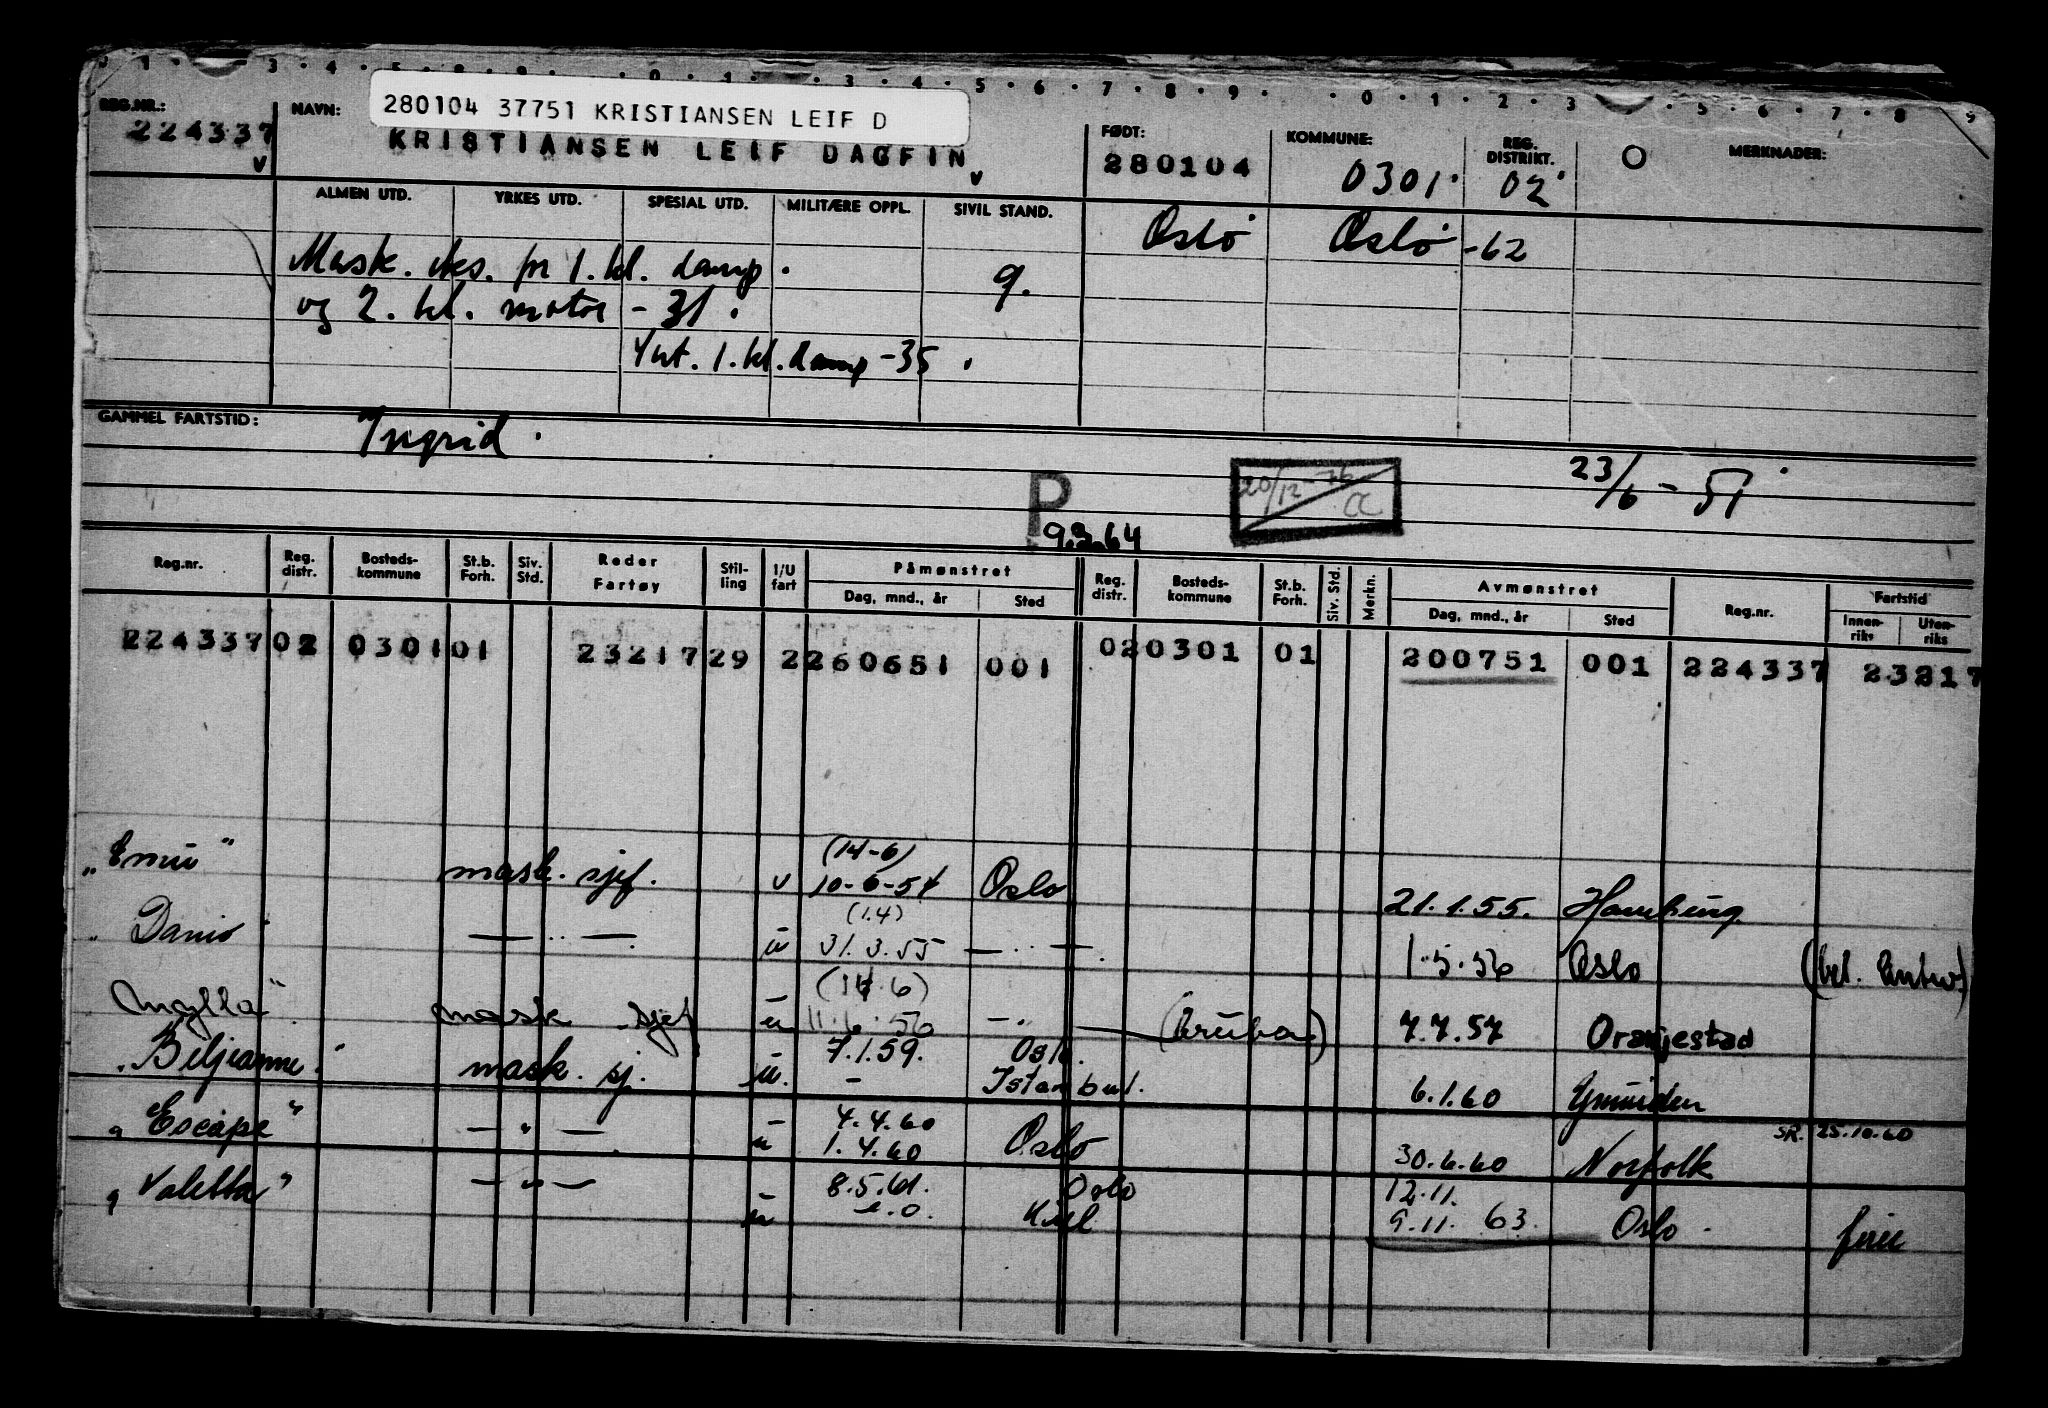 REG.NR.: NAVN: 280104 37751 KRISTIANSEN LEIF D FØDT: KOMMUNE: REG. DISTRIKT. MERKNADER:
224337 KRISTIANSEN LEIF DAGFIN 280104 0301 02
ALMEN UTD. YRKES UTD. SPESIAL UTD. MILITÆRE OPPL. SIVIL STAND. Oslo Oslo -62
Mask. eks. for 1. kl. damp. g.
og 2. kl. motor - 31.
Utv. 1. kl. damp - 35.
GAMMEL FARTSTID: Ingrid.
P 20/12-76 a 23/6 - 51
9.3.64
Reg.nr. Reg. distr. Bosteds-kommune St.b. Forh. Siv. Std. Reder Fartøy Stil-ling I/U fart Påmønstret Dag, mnd., år Sted Reg. distr. Bosteds-kommune St.b. Forh. Siv. Std. Merkn. Avmønstret Dag, mnd., år Sted Reg.nr. Fartstid Innen-riks Uten-riks
224337 02 0301 01 23217 29 2 260651 001 02 0301 01 200751 001 224337 23217
(14-6)
mask. sjef. u 10-6-54 Oslo 21.1.55. Hamburg
(1.4)
" Danis — " — u 31.3.55 — " — 1.5.56 Oslo
(14.6)
mask sjef u 11.6.56 — " — (Aruba) 7.7.57 Oranjestad
7.1.59. Oslo.
"Biljeanne" mask. sj. u. - Istanbul. 6.1.60 Ymuiden
4.4.60 SR. 25.10.60
"Escape" — " — u 1.4.60 Oslo 30.6.60 Norfolk
8.5.61. Oslo 12.11.
"Valetta" — " — u Kiel 9.11. 63. Oslo